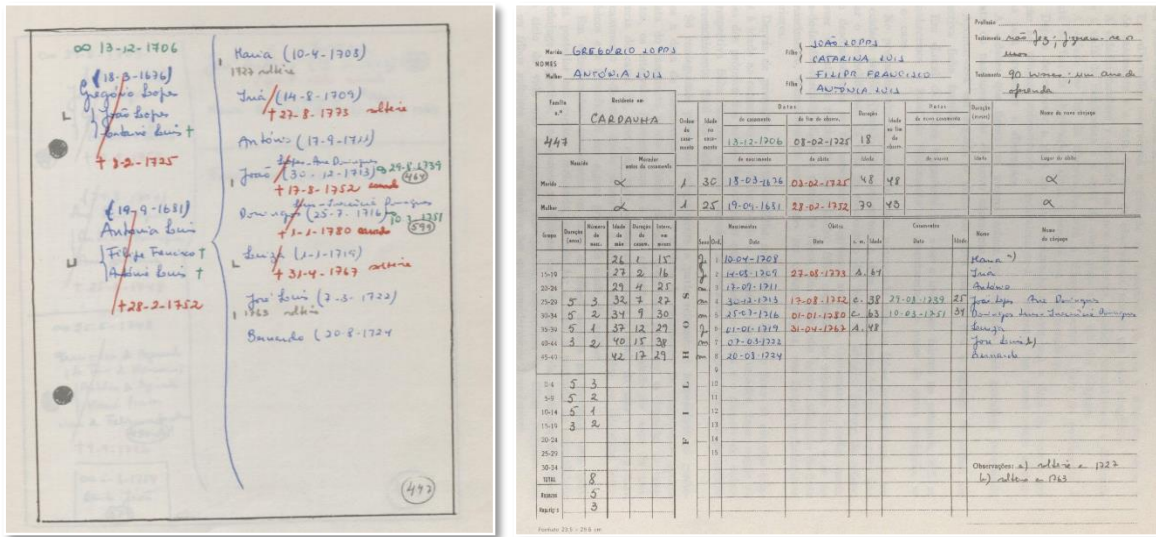 ∞ 13-12-1706
(18-3-1676)
Gregório Lopes
João Lopes
Luis †
† 8-2-1725
(19-9-1681)
Antónia Luis
Filipe †
António Luis †
† 28-2-1752
Maria (10-4-1708)
1727 solteira
(14-8-1709)
† 27-8-1773 solteira
António (17-9-1711)
Lopes - Ana Domingues
João (30-12-1713) ∞ 29-8-1739
† 17-8-1752 casado
Domingos (25-7-1716)
† 1-1-1780 casado
Luiza (1-1-1719)
† 31-4-1767 solteira
José Luis (7-3-1722)
1763 solteiro
Bernardo (20-8-1724
Profissão
Marido GREGÓRIO LOPES
Filho JOÃO LOPES
CATARINA LUIS
Testamento não fez; fizeram-se os
usos
NOMES
Mulher ANTÓNIA LUIS
Filha FILIPE FRANCISCO
ANTÓNIA LUIS
Testamento 90 missas; um ano de
oferenda
Família n.º Residente em
447 CARDANHA
Ordem do casamento Idade no casamento Datas do casamento do fim de observ. Duração Idade no fim de observ. Datas do novo casamento Duração (meses) Nome do novo cônjuge
13-12-1706 08-02-1725 18
Nascido Morador antes do casamento de nascimento de óbito Idade de viuvez Idade Lugar do óbito
Marido α 1 30 18-03-1676 03-02-1725 48 48 α
Mulher α 1 25 19-09-1681 28-02-1752 70 43 α
Grupo Duração (anos) Número de nasc. Idade da mãe Duração do casam. Interv. em meses
FILHOS Sexo Ord. Nascimentos Data Óbitos Data e. m. Idade Casamentos Data Idade Nome Nome do cônjuge
26 1 15 f 1 10-04-1708 Maria a)
15-19 27 2 16 f 2 14-08-1709 27-08-1773 s.
20-24 29 4 25 m 3 17-09-1711 António
25-29 5 3 32 7 27 m 4 30-12-1713 17-08-1752 c. 38 29-08-1739 25 João Lopes Ana Domingues
30-34 5 2 34 9 30 m 5 25-07-1716 01-01-1780 c. 63 10-03-1751 34 Domingos
35-39 5 1 37 12 29 f 6 01-01-1719 31-04-1767 s. 48 Luiza
40-44 3 2 40 15 38 m 7 07-03-1722 José Luis b)
45-49 42 17 29 m 8 20-08-1724 Bernardo
9
0-4 5 3 10
5-9 5 2 11
10-14 5 1 12
15-19 3 2 13
20-24 14
25-29 15
30-34
TOTAL 8
Rapazes 5
Raparigas 3
Observações: a) solteira em 1727
b) solteiro em 1763